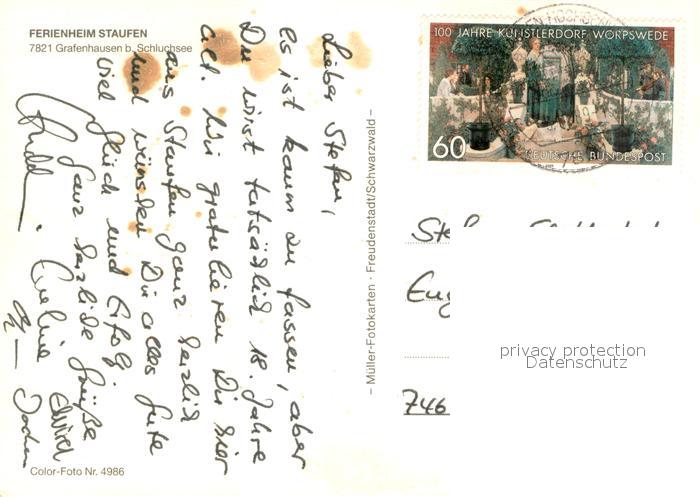 FERIENHEIM STAUFEN
7821 Grafenhausen b. Schluchsee
Lieber Stefan,
es ist kaum zu fassen, aber
Du wirst tatsächlich 18. Jahre
alt. Wir gratulieren Dir hier
aus Staufen ganz herzlich
und wünschen Dir alles Gute
viel Glück und Erfolg.
Ganz herzliche Grüße
Eveline
Jochen
Color-Foto Nr. 4986
– Müller-Fotokarten · Freudenstadt/Schwarzwald –
100 JAHRE KÜNSTLERDORF WORPSWEDE
60
DEUTSCHE BUNDESPOST
746
privacy protection
Datenschutz